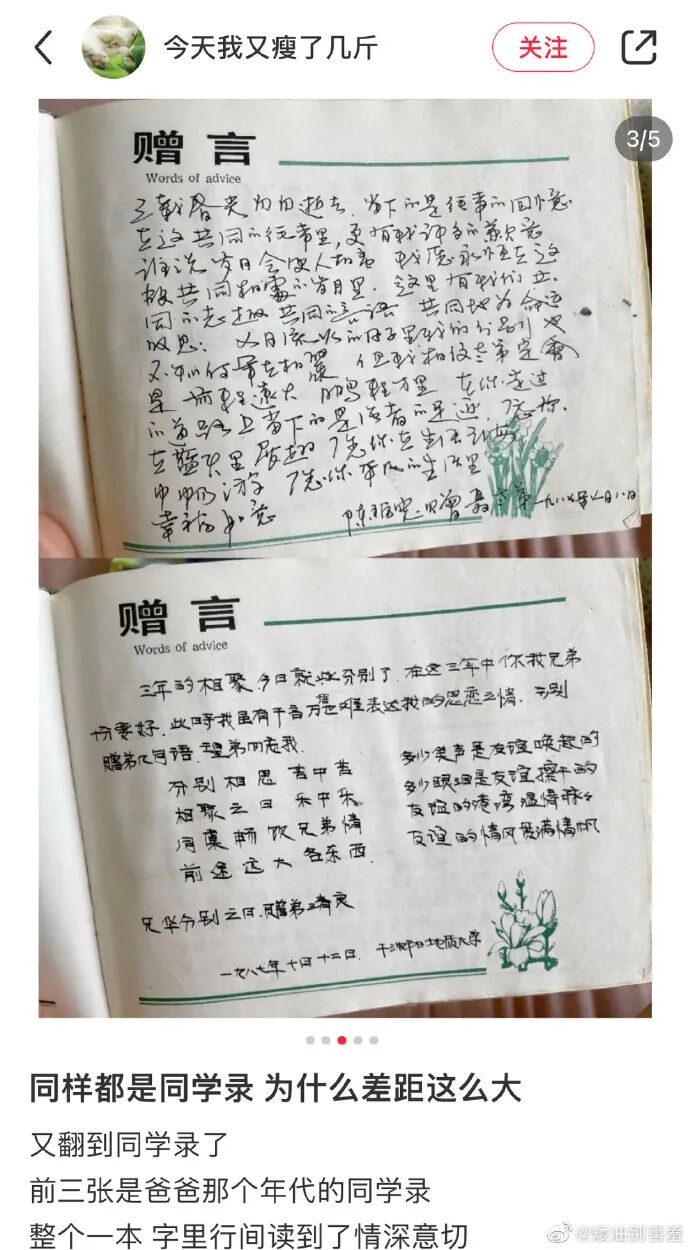 今天我又瘦了几斤
关注
3/5
赠言
Words of advice
三载春光匆匆逝去，留下的是往事的回忆
在这共同的往事里，更有我许多的歉意
谁说岁月会使人相忘 我愿永恒在这
极共同相处的岁月里，这里有我们共
同的志趣 共同的言语 共同地为命运
叹息；
又不知何年在相聚 但我相信
是前程远大 鹏程万里 在你走过
的道路上留下的是 的足迹，愿你
在 里 愿你在生活
中 游 愿你 的生活里
幸福如意
一九八七年
赠言
Words of advice
三年的相聚，今日就此分别了，在这三年中你我兄弟
份要好，此时我虽有千言万语难表达我的思恋之情，
赠弟几句语，望弟勿忘我．
分别相思 苦中苦
相聚之日 乐中乐
同桌畅饮兄弟情
前途远大 各东西．
多少笑声是友谊唤起的
多少眼泪是友谊擦干的
友谊的港湾温情脉々
友谊的情风 满情帆
兄华分别之日，赠弟
一九八七年十月十二日． 于 地质大学
同样都是同学录 为什么差距这么大
又翻到同学录了
前三张是爸爸那个年代的同学录
整个一本 字里行间读到了情深意切
@矮油别害羞